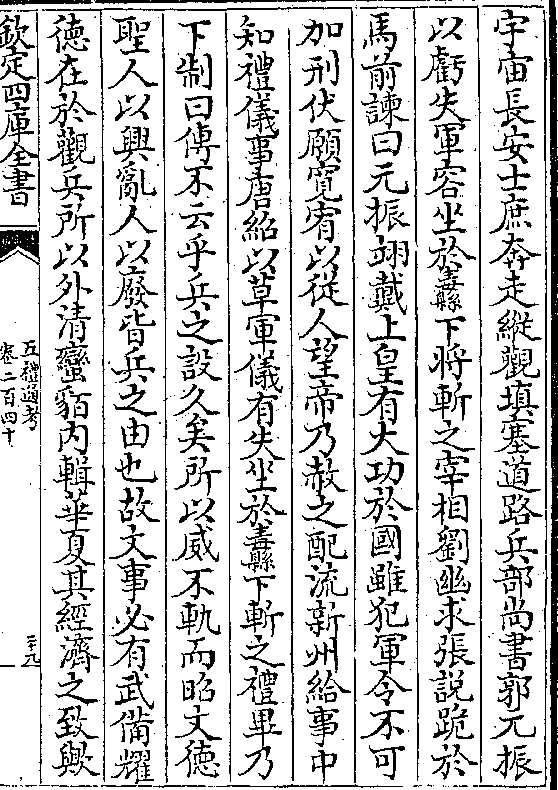 宇宙長安士庶奔走縱觀填塞道路兵部尚書郭元振
以虧失軍容坐於纛下將斬之宰相劉幽求張說跪於
馬前諫曰元振翊戴上皇有大功於國雖犯軍令不可
加刑伏願寛宥以從人望帝乃赦之配流新州給事中
知禮儀事唐紹以草軍儀有失坐於纛下斬之禮畢乃
下制曰傳不云乎兵之設久矣所以威不軌而昭文德
聖人以興亂人以廢皆兵之由也故文事必有武備耀
徳在於觀兵所以外清蠻貊内輯華夏其經濟之致歟
欽定四庫全書
五禮通考
卷二百四十
三十九